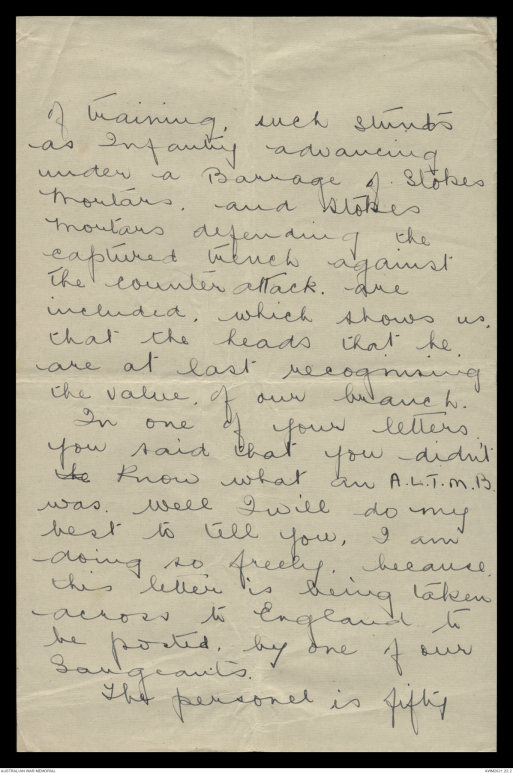 of training, such stunts
as Infantry advancing
under a Barrage of Stokes
Mortars, and Stokes
Mortars defending the
captured trench against
the counter attack. are
included, which shows us,
that the heads that he,
are at last recognising
the value, of our branch.
In one of your letters,
you said that you didn't
the know what an A.L.T.M.B.
was. Well I will do my
best to tell you, I am
doing so freely, because
this letter is being taken
across to England to
be posted, by one of our
Sargeants.
The personel is fifty
AUSTRALIAN WAR MEMORIAL